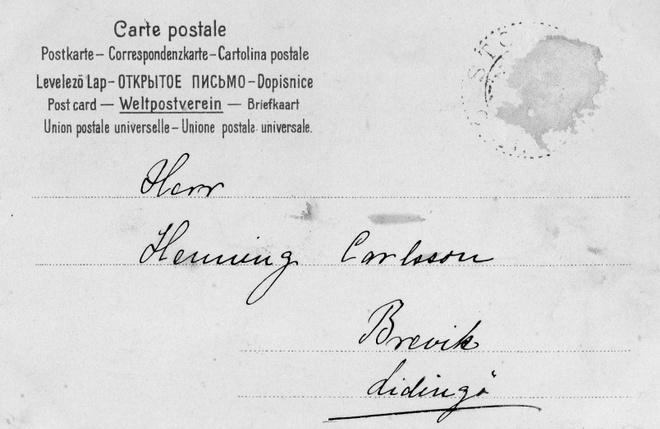 Carte postale
Postkarte – Correspondenzkarte – Cartolina postale
Levelezö Lap – ОТКРЫТОЕ ПИСЬМО – Dopisnice
Post card — Weltpostverein — Briefkaart
Union postale universelle – Unione postale universale.
Herr
Henning Carlsson
Brevik
Lidingö